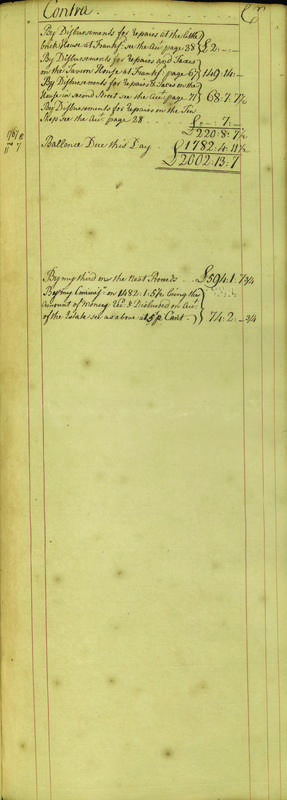 Contra Cr
By Disbursements for repairs at the little
brick House at Frankfd. see the Acct. page 38 } £2 : — : —
By Disbursements for repairs and Taxes
on the Tavern House at Frankfd. page 67 } 149 : 14 : —
By Disbursements for repairs & Taxes on the
House in second Street see the Acct. page 71 } 68 : 7 : 7½
By Disbursements for repairs on the Tan
Shop see the Acct. page 28 £ — : 7 : —
£220 : 8 : 7½
Ballance Due this Day £1782 : 4 : 11½
£2002 : 13 : 7
By my third on the Neat Proceeds £594 : 1 : 7¾
By my Commissn. on 1482 : 1 : 5½ being the
Amount of Money Recd. & Disbursted on Acct.
of the Estate see as above at 5 p Cent } 74 : 2 : — ¾